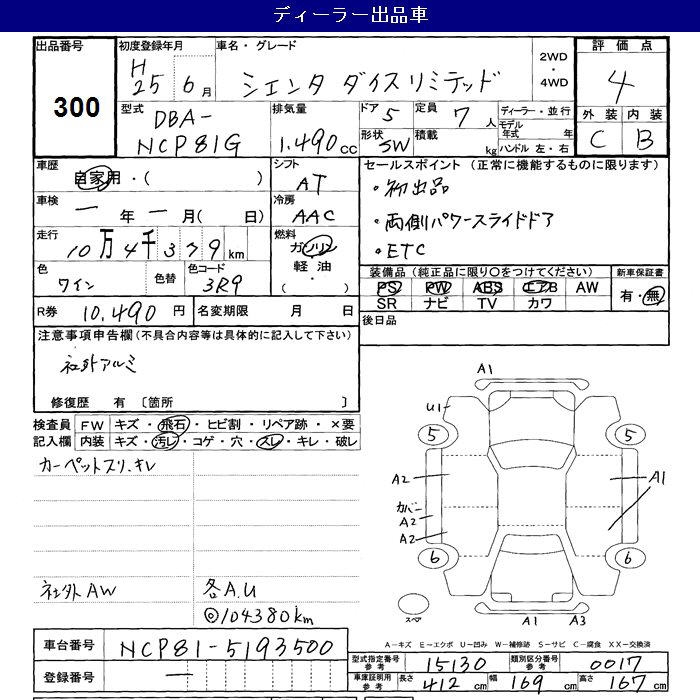 ディーラー出品車
出品番号
300
初度登録年月
H
25 6 月
車名・グレード
シエンタ ダイスリミテッド
2WD
・
4WD
評価点
4
外装 内装
C B
型式
DBA-
NCP81G
排気量
1.490 cc
ドア 5
定員 7 人
形状 SW
積載 kg
ディーラー・並行
モデル
年式 年
ハンドル 左・右
車歴
自家用・( )
シフト
AT
車検
ー 年 ー 月( 日)
冷房
AAC
走行
10万4千379 km
燃料
ガソリン
軽油・
( )
色
ワイン
色替
色コード
3R9
セールスポイント (正常に機能するものに限ります)
・初出品
・両側パワースライドドア
・ETC
装備品 (純正品に限り〇をつけてください)
PS PW ABS エアB AW
SR ナビ TV カワ
新車保証書
有・無
R券 10.490 円
名変期限 月 日
後日品
注意事項申告欄 (不具合内容等は具体的に記入して下さい)
社外アルミ
修復歴 有 〔箇所 〕
検査員
記入欄
FW キズ・飛石・ヒビ割・リペア跡・×要
内装 キズ・汚レ・コゲ・穴・スレ・キレ・破レ
カーペットスリ.キレ
社外AW
各A.U
◎104380km
A1
U1
5
5
A2
A1
カバー
A2
A2
6
6
スペア
A1 A3
A-キズ E-エクボ U-凹み W-補修跡 S-サビ C-腐食 XX-交換済
車台番号 NCP81-5193500
登録番号 ー
型式指定番号
参考
15130
類別区分番号
参考
0017
車庫証明用
参考
長さ 412 cm 幅 169 cm 高さ 167 cm